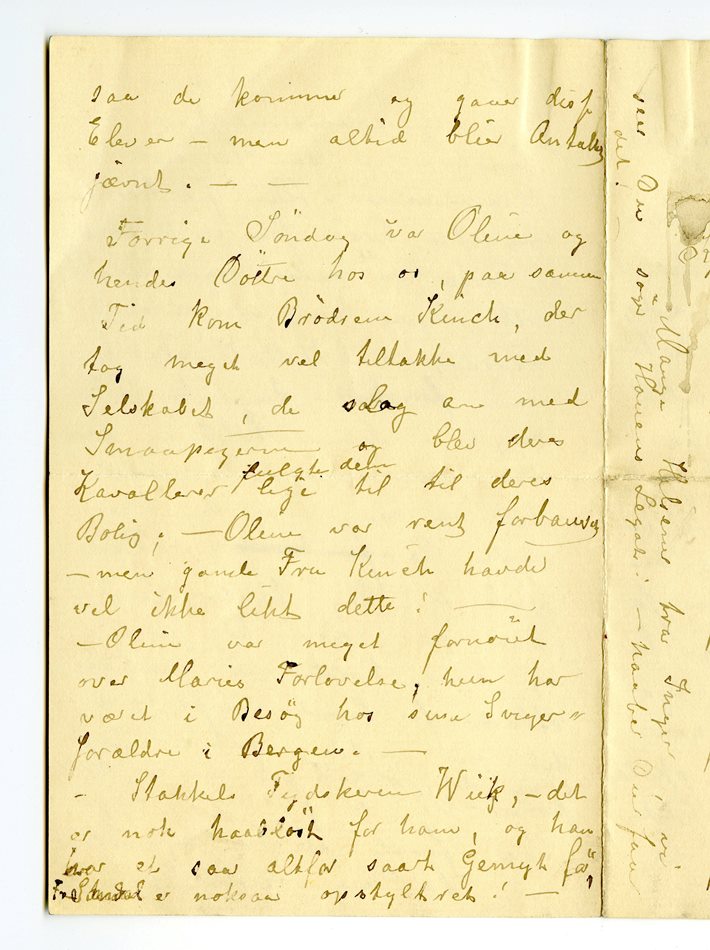 saa de kommer og gaaer disse
Elever – men altid blier Antallet
jævnt. – –
Forrige Söndag var Oline og
hendes Döttre hos os, paa samme
Tid kom Brödrene Kinck, der
tog meget vel tiltakke med
Selskabet, de slog an med
Smaapigerne og blev deres
Kavallerer fulgte dem lige til til deres
Bolig; – Oline var rent forbauset
– men gamle Fru Kinck havde
vel ikke likt dette! –
– Oline var meget fornöiet
over Maries Forlovelse, hun har
været i Besög hos sine Sviger=
forældre i Bergen. –
– Stakkels Tydskeren Wiik, – det
er nok haablöst for ham, og han
har et saa altfor saart Gemyt för,
Fru er noksaa opstyltret! –
Mange Hilsener fra Inga i vi
seer Du sögt Houens Legat! – haaber Du faar
det! –